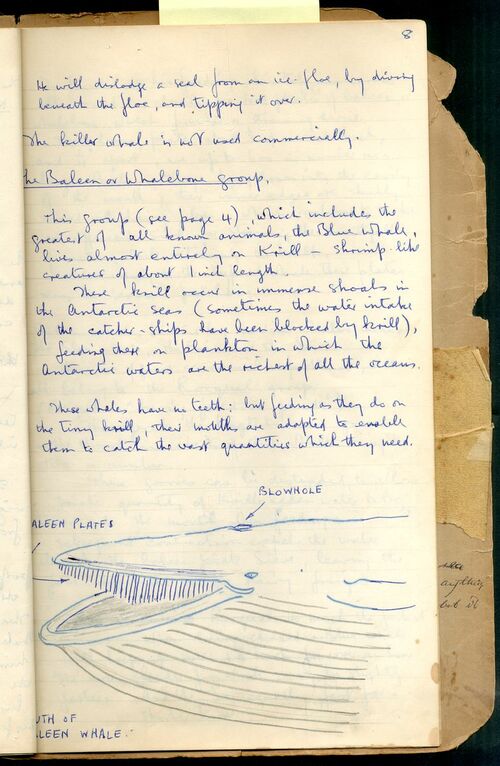 8
He will dislodge a seal from an ice-floe, by diving
beneath the floe, and tipping it over.
The killer whale is not used commercially.
he Baleen or Whalebone group.
This group (see page 4), which includes the
greatest of all known animals, the Blue Whale,
lives almost entirely on Krill – shrimp-like
creatures of about 1 inch length.
These krill occur in immense shoals in
the Antarctic seas (sometimes the water intake
of the catcher-ships have been blocked by krill),
feeding there on plankton in which the
Antarctic waters are the richest of all the oceans.
These whales have no teeth: but feeding as they do on
the tiny krill, their mouths are adapted to enable
them to catch the vast quantities which they need.
BLOWHOLE
ALEEN PLATES
UTH OF
LEEN WHALE.
anything
but it